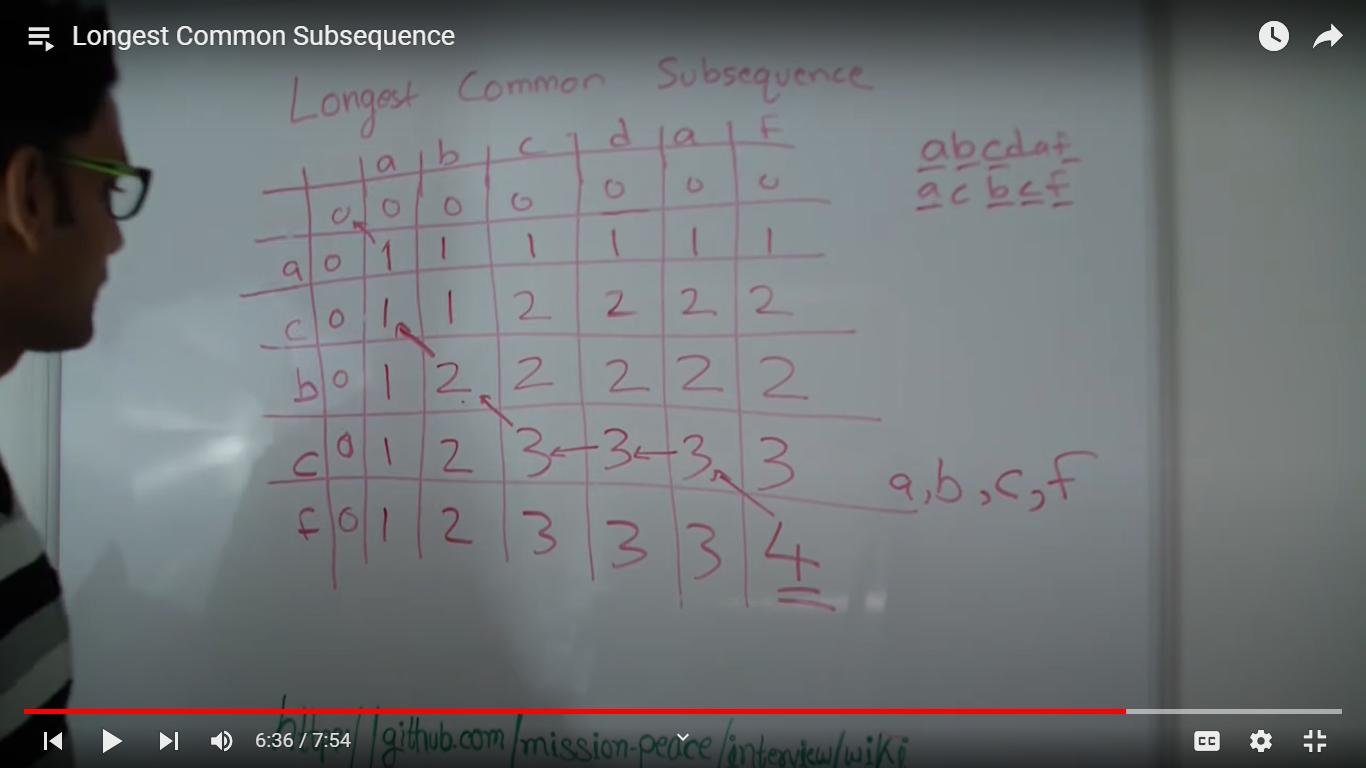 Longest Common Subsequence
Longest Common Subsequence
a b c d a f
0 0 0 0 0 0 0
a 0 1 1 1 1 1 1
c 0 1 1 2 2 2 2
b 0 1 2 2 2 2 2
c 0 1 2 3 3 3 3
f 0 1 2 3 3 3 4
abcdaf
acbcf
a,b,c,f
http://github.com/mission-peace/interview/wiki
6:36 / 7:54
CC